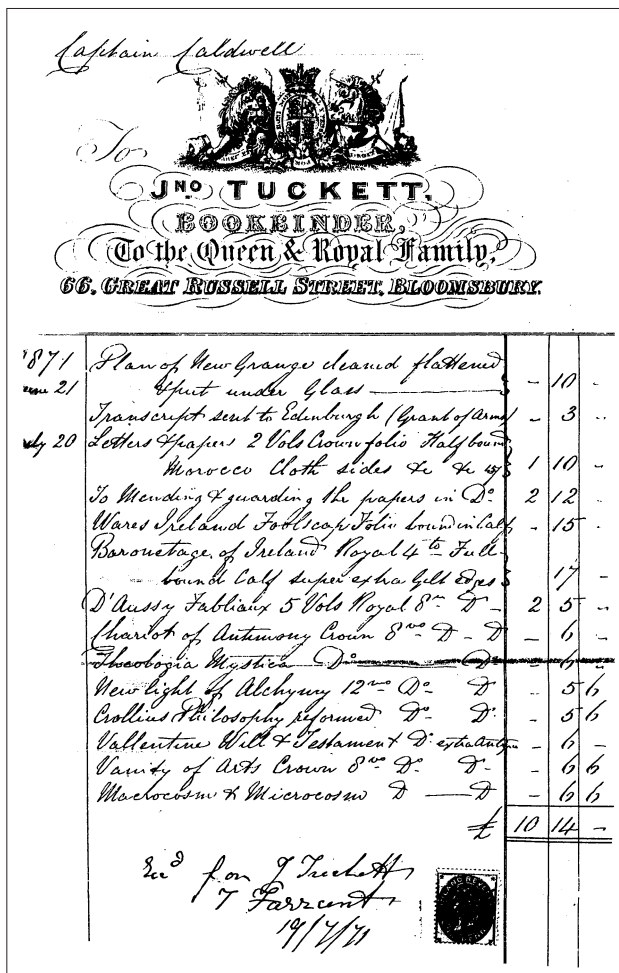 Captain Caldwell
To
JNO TUCKETT,
BOOKBINDER,
To the Queen & Royal Family,
66, GREAT RUSSELL STREET, BLOOMSBURY.
1871 Plan of New Grange cleaned flattened
June 21 & put under Glass - 10 -
Transcript sent to Edinburgh (Grant of Arms) - 3 -
July 20 Letters & papers 2 Vols Crown folio Half bound
Morocco Cloth sides &c &c 15/ 1 10 -
To Mending & guarding the papers in Do 2 12 -
Wares Ireland Foolscap Folio bound in Calf - 15 -
Baronetage of Ireland Royal 4to Full
bound Calf super extra Gilt edges 17 -
D'Aussy Fabliaux 5 Vols Royal 8vo D - 2 5 -
Chariot of Antimony Crown 8vo D - D - 6 -
Theologia Mystica Do Do - 6 -
New light of Alchymy 12mo Do D - 5 6
Crollius Philosophy reformed Do D - 5 6
Vallentine Will & Testament D extra Antique - 6 -
Vanity of Arts Crown 8vo Do D - 6 6
Macrocosm & Microcosm D D - 6 6
£ 10 14 -
for J Tuckett
T
19/7/71